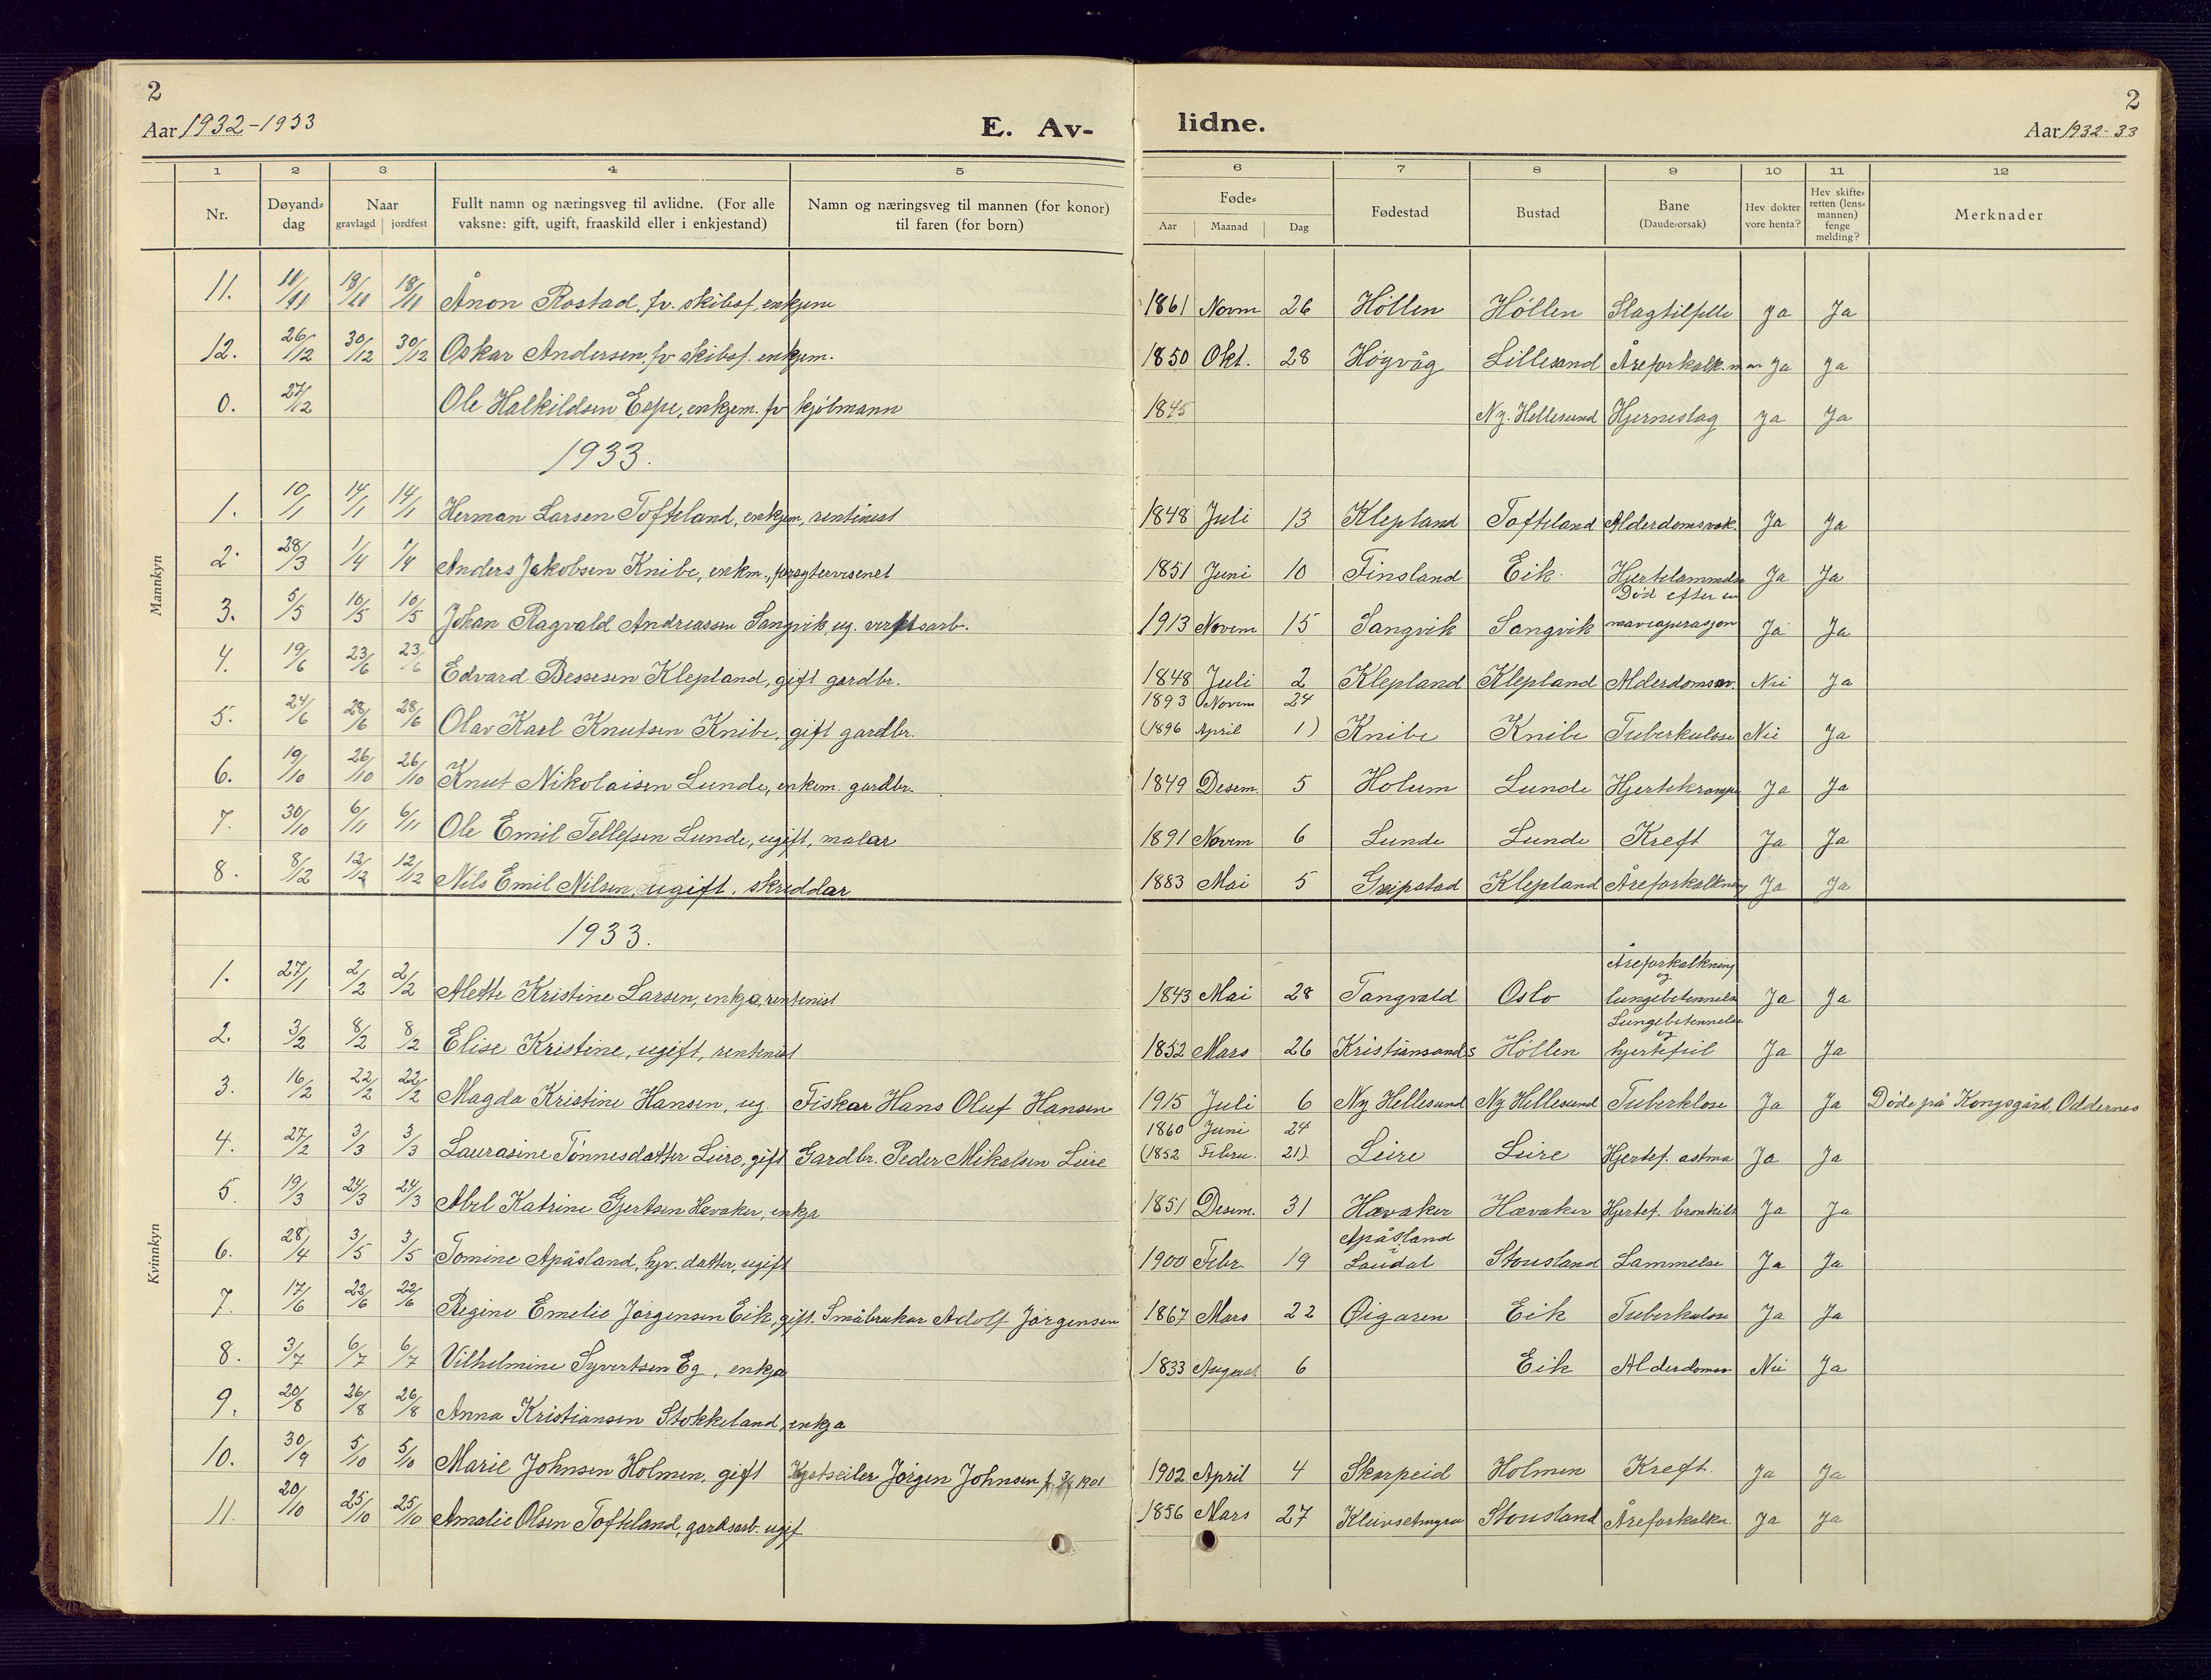 2
Aar 1932-1933
E. Av-
lidne.
2
Aar 1932-33
1 2 3 4 5 6 7 8 9 10 11 12
Nr. Døyand-dag Naar gravlagd jordfest Fullt namn og næringsveg til avlidne. (For alle vaksne: gift, ugift, fraaskild eller i enkjestand) Namn og næringsveg til mannen (for konor) til faren (for born) Føde- Aar Maanad Dag Fødestad Bustad Bane (Daude-orsak) Hev dokter vore henta? Hev skifte-retten (lens-mannen) fenge melding? Merknader
Mannkyn
11. 11/11 18/11 18/11 Ånon Rostad, fv. skibsf. enkjem 1861 Novm 26 Höllen Höllen Slagtilfelle ja Ja
12. 26/12 30/12 30/12 Oskar Andersen, fv skibsf. enkjem. 1850 Okt. 28 Högvåg Lillesand Åreforkalk. Ja Ja
0. 27/12 Ole Halkildsen Espe, enkjem. fv kjölmann 1845 Ny. Hellesund Hjerneslag Ja Ja
1933.
1. 10/1 14/1 14/1 Herman Larsen Tofteland, enkjem, rentinist 1848 Juli 13 Klepland Tofteland Alderdomsvak. Ja Ja
2. 28/3 1/4 1/4 Anders Jakobsen Knibe, enkm., forsytervesenet 1851 Juni 10 Finsland Eik Hjertelammelse Ja Ja
3. 5/5 10/5 10/5 Johan Ragvald Andreassen Sangvik, ug. verkstsarb. 1913 Novem 15 Sangvik Sangvik Död efter en maveoperasjon Ja Ja
4. 19/6 23/6 23/6 Edvard Bessesen Klepland, gift gardbr. 1848 Juli 2 Klepland Klepland Alderdomssv. Nei Ja
5. 24/6 28/6 28/6 Olav Karl Knutsen Knibe, gift gardbr. 1893 Novem 24 (1896 April 1) Knibe Knibe Tuberkulose Nei Ja
6. 19/10 26/10 26/10 Knut Nikolaisen Lunde, enkem. gardbr. 1849 Desem. 5 Holum Lunde Hjertekrampe Ja Ja
7. 30/10 6/11 6/11 Ole Emil Tellefsen Lunde, ugift, malar 1891 Novem 6 Lunde Lunde Kreft Ja Ja
8. 8/12 12/12 12/12 Nils Emil Nilsen, ugift, skreddar 1883 Mai 5 Greipstad Klepland Åreforkalkning Ja Ja
Kvinnkyn
1933.
1. 27/1 2/2 2/2 Alette Kristine Larsen, enkja, rentenist 1843 Mai 28 Tangvald Oslo Åreforkalkning og lungebetennelse Ja Ja
2. 3/2 8/2 8/2 Elise Kristine, ugift, rentenist 1852 Mars 26 Kristiansands Höllen Lungebetennelse og hjertefeil Ja Ja
3. 16/2 22/2 22/2 Magda Kristine Hansen, ug. Fiskar Hans Oluf Hansen 1915 Juli 6 Ny Hellesund Ny Hellesund Tuberklose Ja Ja Döde på Kongsgård, Oddernes
4. 27/2 3/3 3/3 Laurasine Tönnesdatter Leire, gift Gardbr. Peder Mikalsen Leire 1860 Juni 24 (1852 Febru. 21). Leire Leire Hjertef. astma Ja Ja
5. 19/3 24/3 24/3 Abel Katrine Gjertsen Hævaker, enkja 1851 Desem. 31 Hævaker Hævaker Hjertef. bronkitt Ja Ja
6. 28/4 3/5 3/5 Tomine Apåsland, hjv. datter, ugift 1900 Febr. 19 Apåsland i Laudal Stousland Lammelse Ja Ja
7. 17/6 22/6 22/6 Regine Emelie Jörgensen Eik, gift. Småbrukar Adolf Jörgensen 1867 Mars 22 Øigaren Eik Tuberkulose Ja Ja
8. 3/7 6/7 6/7 Vilhelmine Syvertsen Eg, enkja 1833 August 6 Eik Alderdomsv Nei Ja
9. 20/8 26/8 26/8 Anna Kristiansen Stokkeland, enkja
10. 30/9 5/10 5/10 Marie Johnsen Holmen, gift Kystseiler Jörgen Johnsen f. 1901 1902 April 4 Skarpeid Holmen Kreft. Ja Ja
11. 20/10 25/10 25/10 Amalie Olsen Tofteland, gardsarb. ugif 1856 Mars 27 Kleivsetmyra Stousland Åreforkalkn. Ja Ja